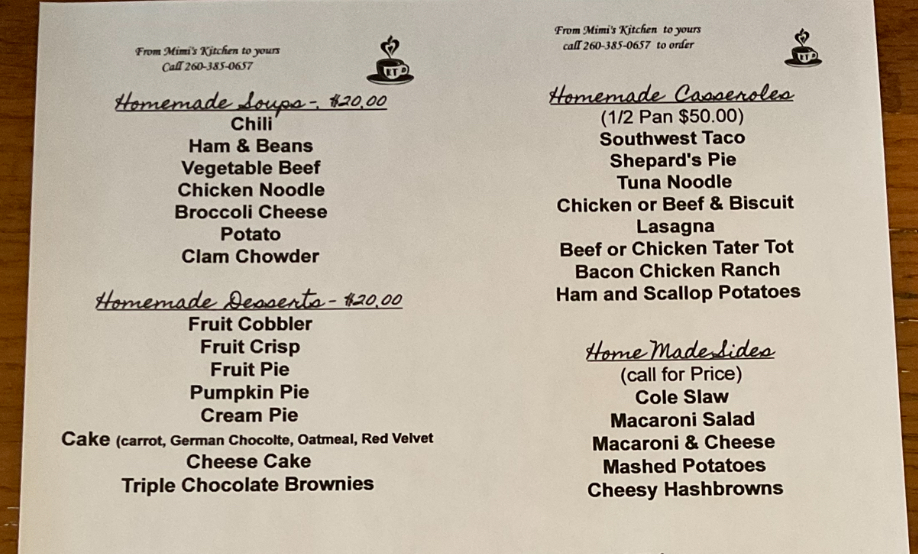 From Mimi's Kitchen to yours
Call 260-385-0657
ET
Homemade Soups - $20.00
Chili
Ham & Beans
Vegetable Beef
Chicken Noodle
Broccoli Cheese
Potato
Clam Chowder
Homemade Desserts - $20.00
Fruit Cobbler
Fruit Crisp
Fruit Pie
Pumpkin Pie
Cream Pie
Cake (carrot, German Chocolte, Oatmeal, Red Velvet
Cheese Cake
Triple Chocolate Brownies
From Mimi's Kitchen to yours
call 260-385-0657 to order
ET
Homemade Casseroles
(1/2 Pan $50.00)
Southwest Taco
Shepard's Pie
Tuna Noodle
Chicken or Beef & Biscuit
Lasagna
Beef or Chicken Tater Tot
Bacon Chicken Ranch
Ham and Scallop Potatoes
Home Made Sides
(call for Price)
Cole Slaw
Macaroni Salad
Macaroni & Cheese
Mashed Potatoes
Cheesy Hashbrowns